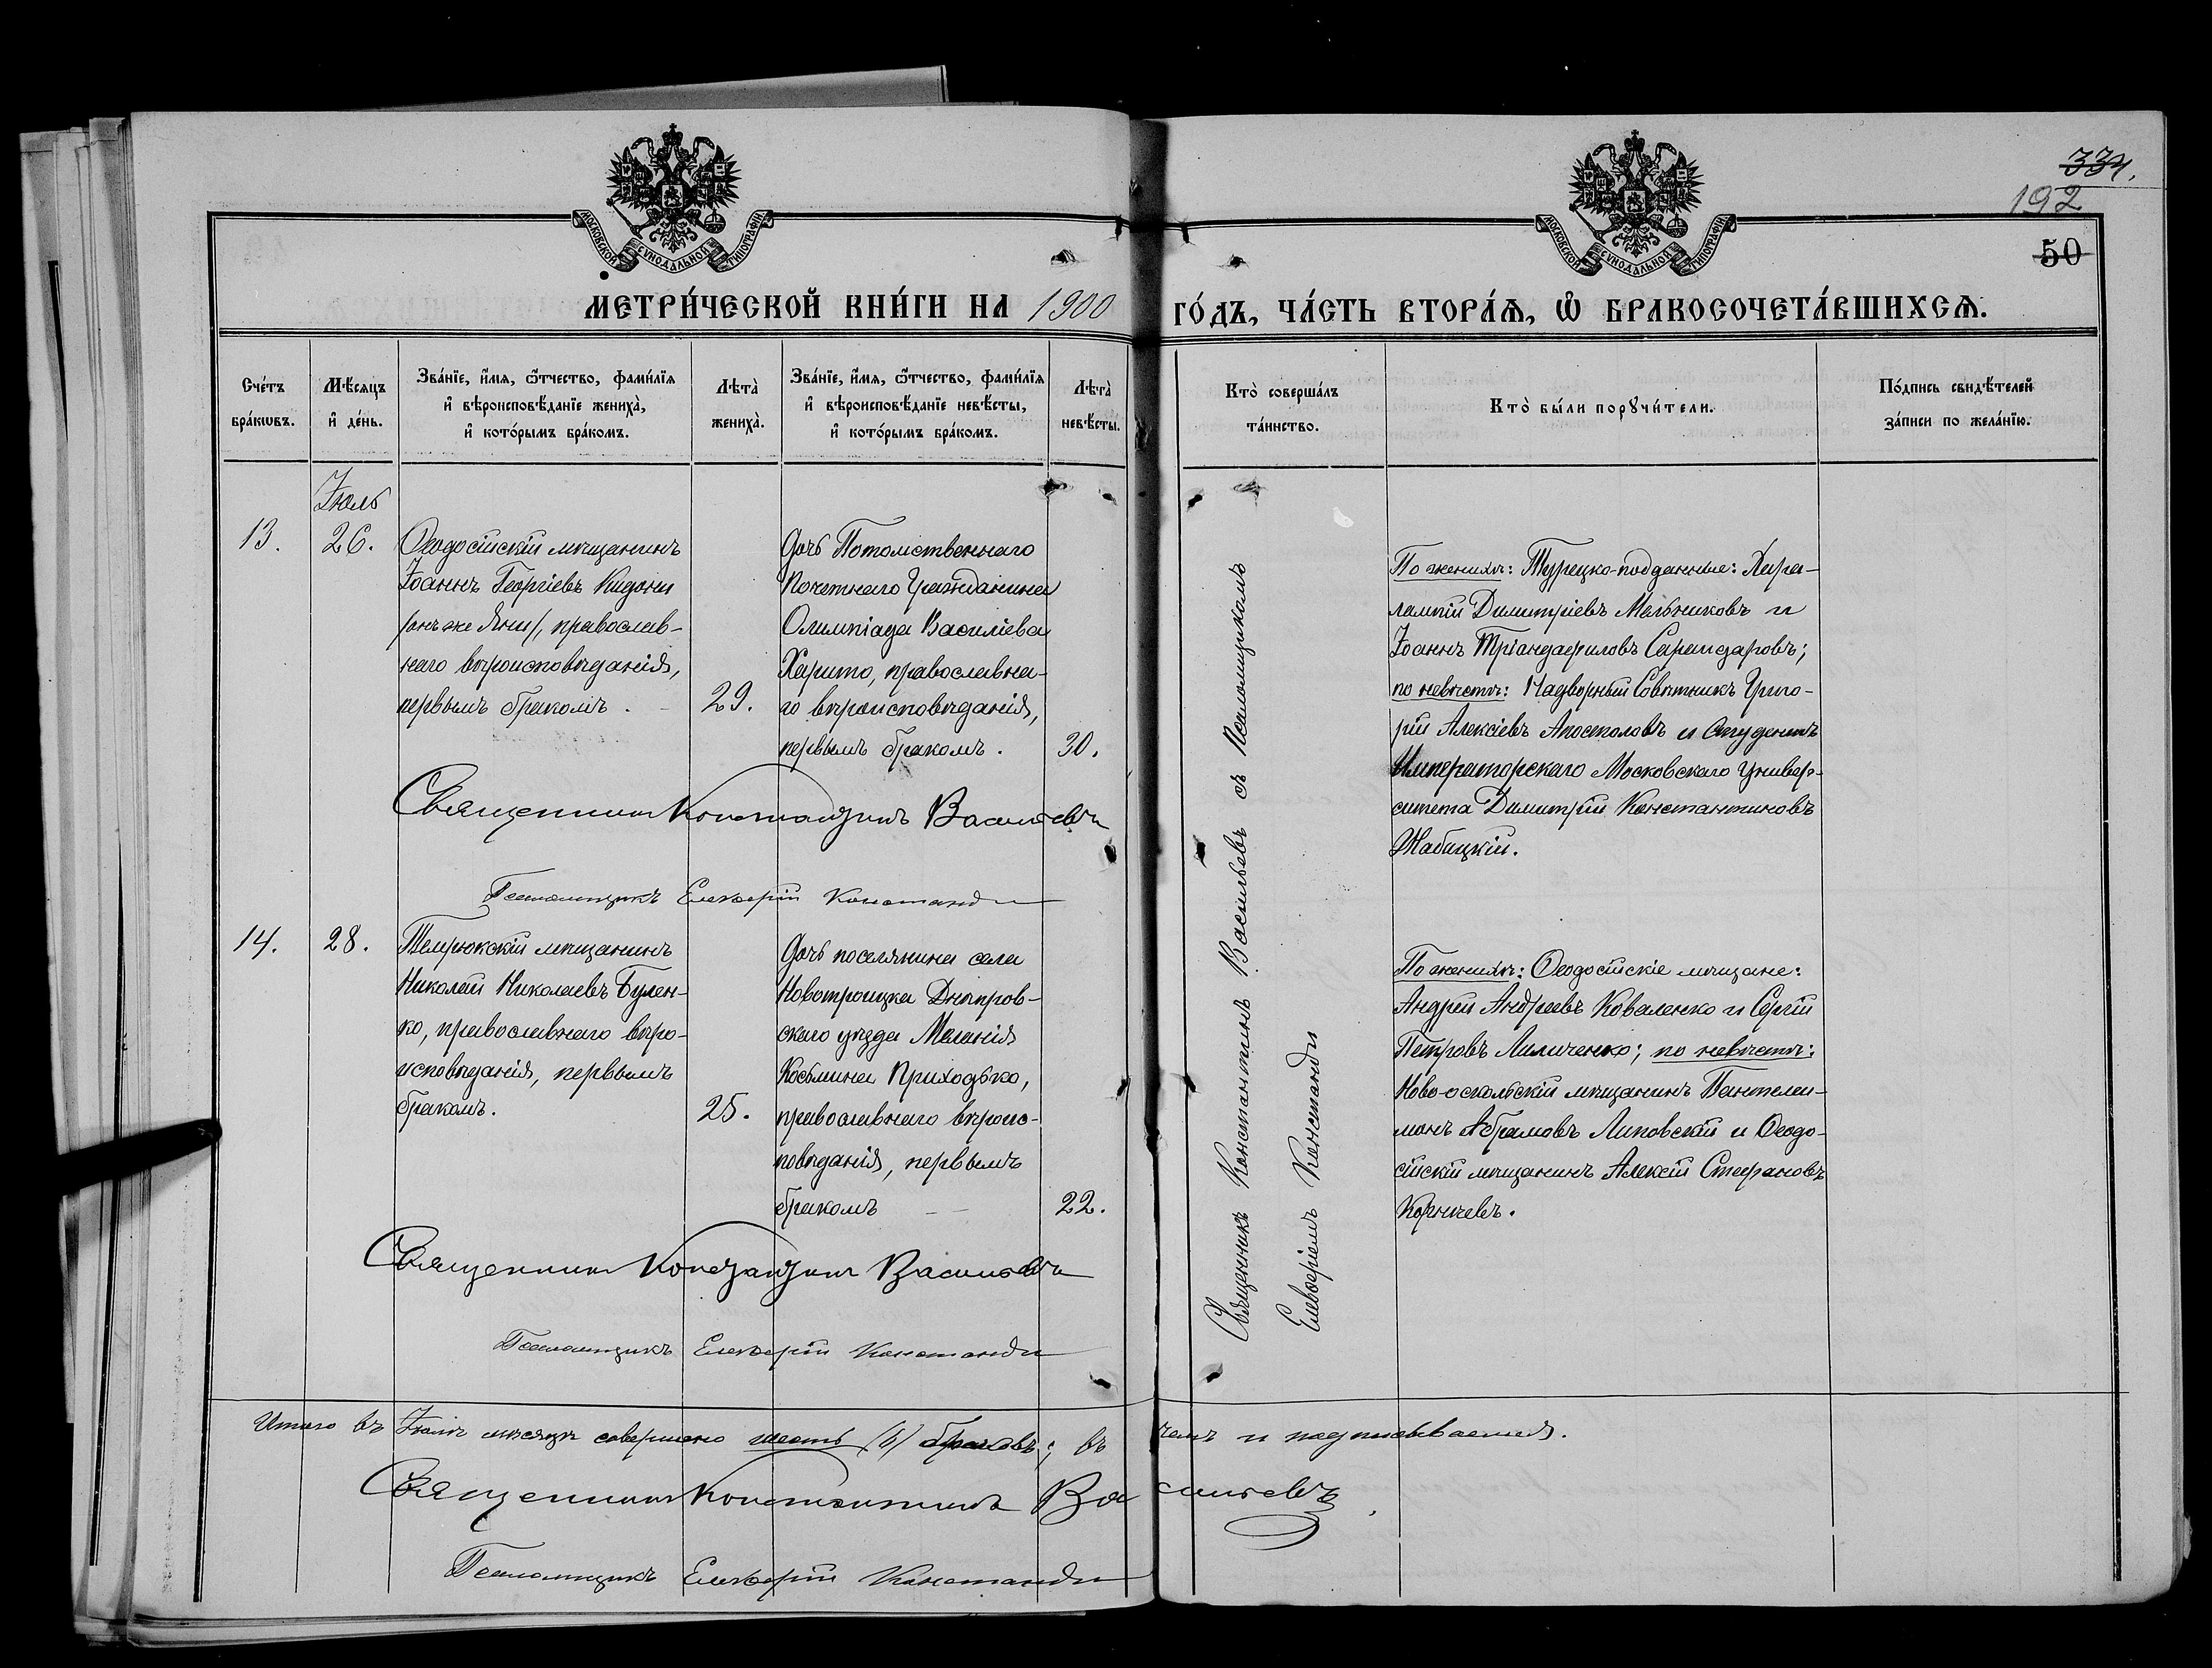 334.
192
50
МОСКОВСКОЙ СѴНОДАЛЬНОЙ ТИПОГРАФІИ
МОСКОВСКОЙ СѴНОДАЛЬНОЙ ТИПОГРАФІИ
МЕТРИ́ЧЕСКОЙ КНИ́ГИ НА 1900 ГО́ДЪ, ЧА́СТЬ ВТОРА́Ѧ, Ѡ҆ БРАКОСОЧЕТА́ВШИХСѦ.
Сче́тъ
бра́кѡвъ.
Мѣ́сяцъ
и҆ де́нь.
Зва́нїе, и҆́мя, ѻ҆́тчество, фами́лїя
и҆ вѣроисповѣ́данїе жениха̀,
и҆ кото́рымъ бра́комъ.
Лѣта̀
жениха̀.
Зва́нїе, и҆́мя, ѻ҆́тчество, фами́лїя
и҆ вѣроисповѣ́данїе невѣ́сты,
и҆ кото́рымъ бра́комъ.
Лѣта̀
невѣ́сты.
Кто̀ соверша́лъ
та́инство.
Кто̀ бы́ли порꙋчи́тели.
По́дпись свидѣ́телей
за́писи по жела́нїю.
Іюль
13.
26.
Ѳеодосійскій мѣщанинъ
Іоаннъ Георгіевъ Кидони
/онъ же Яни/, православ-
наго вѣроисповѣданія,
первымъ бракомъ.
29.
Дочь Потомственнаго
Почетнаго Гражданина
Олимпіада Василіева
Харито, православна-
го вѣроисповѣданія,
первымъ бракомъ.
30.
Священникъ Константинъ Васильевъ съ Псаломщикомъ
Елевѳеріемъ Константди
По женихѣ: Турецко-подданные: Хара-
лампій Димитріевъ Мельниковъ и
Іоаннъ Тріандафиловъ Сарандаровъ;
по невѣстѣ: Надворный Совѣтникъ Григо-
рій Алексіевъ Апостоловъ и Студентъ
Императорскаго Московскаго Универ-
ситета Димитрій Константиновъ
Жабицкій.
Священникъ Константинъ Васильевъ
Псаломщикъ Елевѳерій Констанди
14.
28.
Темрюкскій мѣщанинъ
Николай Николаевъ Булен-
ко, православнаго вѣро-
исповѣданія, первымъ
бракомъ.
25.
Дочь поселянина села
Новотроицка Днѣпров-
скаго уѣзда Меланія
Косьмина Приходько,
православнаго вѣроис-
повѣданія, первымъ
бракомъ
22.
По женихѣ: Ѳеодосійскіе мѣщане:
Андрей Андреевъ Коваленко и Сергій
Петровъ Лиличенко; по невѣстѣ:
Ново-оскольскій мѣщанинъ Пантелеи-
монъ Абрамовъ Липовскій и Ѳеодо-
сійскій мѣщанинъ Алексій Стефановъ
Корнѣевъ.
Священникъ Константинъ Васильевъ
Псаломщикъ Елевѳерій Констанди
Итого въ Іюлѣ мѣсяцѣ совершено шесть /6/ браковъ; въ чемъ и подписываемся.
Священникъ Константинъ Васильевъ
Псаломщикъ Елевѳерій Констанди